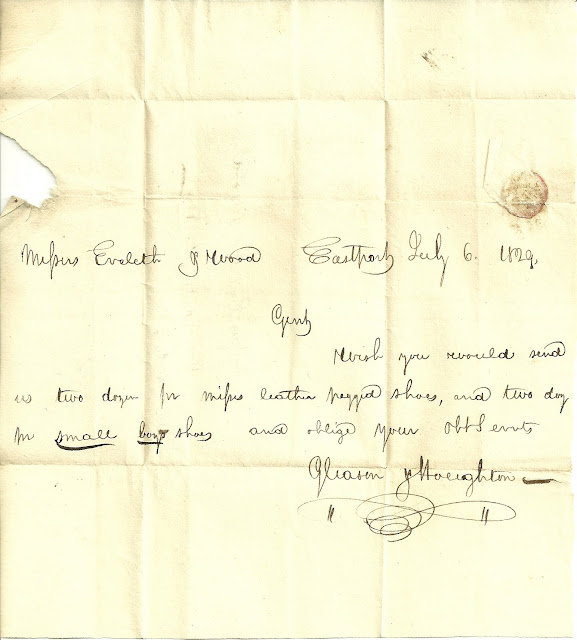 Messrs Eveleth & Wood Eastport July 6. 1829,
Gent
Wish you would send
us two dozen pr misses leather pegged shoes, and two doz
pr small boys shoes and oblige your obt Servts
Gleason & Houghton